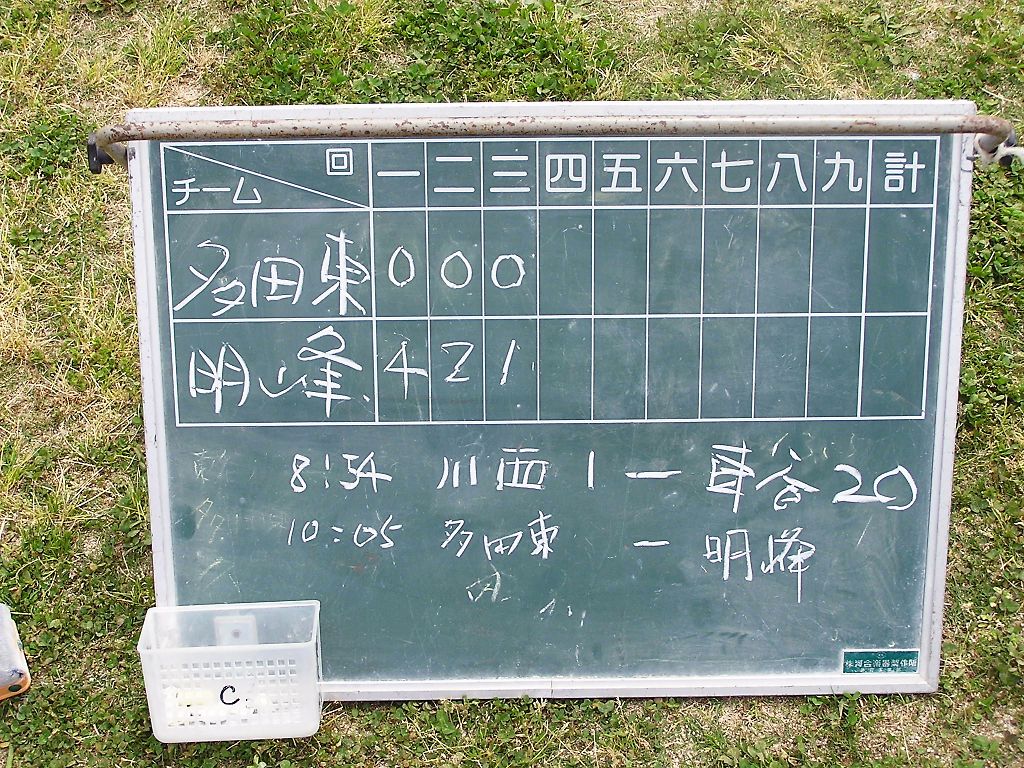 チーム 回 一 二 三 四 五 六 七 八 九 計
多田東 0 0 0
明峰 4 2 1
8:54 川西 1 ー 東谷 20
10:05 多田東 ー 明峰
A.
C